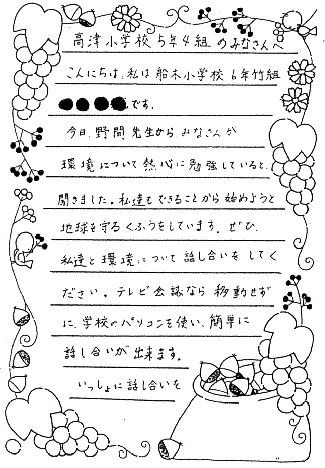 高津小学校5年4組のみなさんへ
こんにちは、私は船木小学校6年竹組
●●●●です。
今日、野間先生からみなさんが
環境について熱心に勉強していると、
聞きました。私達もできることから始めようと
地球を守るくふうをしています。ぜひ、
私達と環境について話し合いをしてく
ださい。テレビ会議なら移動せず
に、学校のパソコンを使い、簡単に
話し合いが出来ます。
いっしょに話し合いを